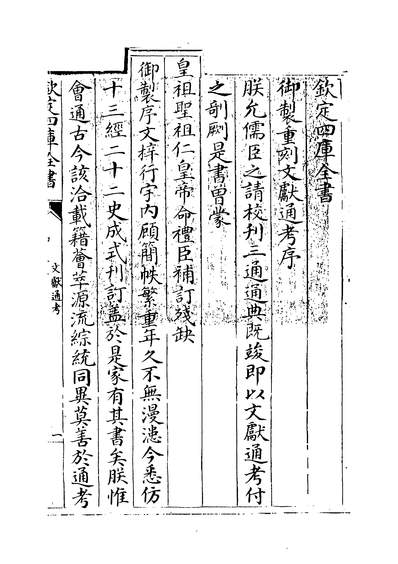 欽定四庫全書
御製重刻文獻通考序
朕允儒臣之請校刊三通通典既竣即以文獻通考付
之剞劂是書曽蒙
皇祖聖祖仁皇帝命禮臣補訂殘缺
御製序文梓行宇内顧簡帙繁重年久不無漫漶今悉仿
十三經二十二史成式刊訂蓋於是家有其書矣朕惟
會通古今該洽載籍薈萃源流綜統同異莫善於通考
欽定四庫全書
文獻通考
一